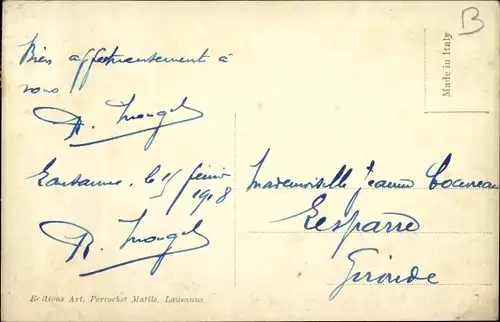 B
Made in Italy
Bien affectueusement à
vous
Lausanne, le 15 février
1918
Mademoiselle Jeanne
Lesparre
Gironde
Editions Art. Perrochet Matile, Lausanne